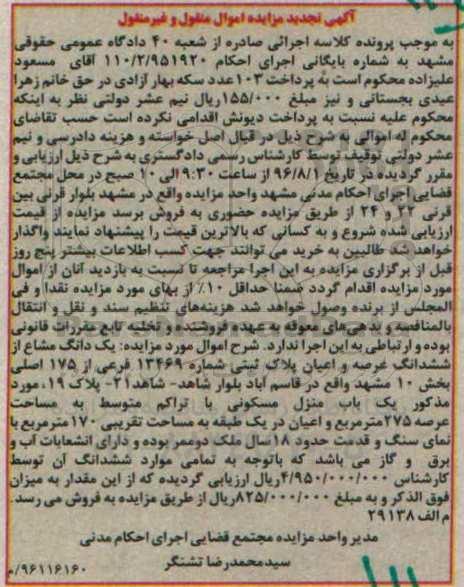 آگهی تجدید مزایده اموال منقول و غیرمنقول
به موجب پرونده کلاسه اجرائی صادره از شعبه ۴۰ دادگاه عمومی حقوقی
مشهد به شماره بایگانی اجرای احکام ۱۱۰/۲/۹۵۱۹۲۰ آقای مسعود
علیزاده محکوم است به پرداخت ۱۰۳عدد سکه بهار آزادی در حق خانم زهرا
عیدی بجستانی و نیز مبلغ ۱۵۵/۰۰۰ریال نیم عشر دولتی نظر به اینکه
محکوم علیه نسبت به پرداخت دیونش اقدامی نکرده است حسب تقاضای
محکوم له اموالی به شرح ذیل در قبال اصل خواسته و هزینه دادرسی و نیم
عشر دولتی توقیف توسط کارشناس رسمی دادگستری به شرح ذیل ارزیابی و
مقرر گردیده در تاریخ ۹۶/۸/۱ از ساعت ۹:۳۰ الی ۱۰ صبح در محل مجتمع
قضایی اجرای احکام مدنی مشهد واحد مزایده واقع در مشهد بلوار قرنی بین
قرنی ۲۲ و ۲۴ از طریق مزایده حضوری به فروش برسد مزایده از قیمت
ارزیابی شده شروع و به کسانی که بالاترین قیمت را پیشنهاد نمایند واگذار
خواهد شد طالبین به خرید می توانند جهت کسب اطلاعات بیشتر پنج روز
قبل از برگزاری مزایده به این اجرا مراجعه تا نسبت به بازدید آنان از اموال
مورد مزایده اقدام گردد ضمنا حداقل ۱۰٪ از بهای مورد مزایده نقدا و فی
المجلس از برنده وصول خواهد شد هزینه‌های تنظیم سند و نقل و انتقال
بالمناصفه و بدهی‌های معوقه به عهده فروشنده و تخلیه تابع مقررات قانونی
بوده و ارتباطی به این اجرا ندارد. شرح اموال مورد مزایده: یک دانگ مشاع از
ششدانگ عرصه و اعیان پلاک ثبتی شماره ۱۳۴۶۹ فرعی از ۱۷۵ اصلی
بخش ۱۰ مشهد واقع در قاسم آباد بلوار شاهد- شاهد۲۱- پلاک ۱۹، مورد
مذکور یک باب منزل مسکونی با تراکم متوسط به مساحت
عرصه ۲۷۵مترمربع و اعیان در یک طبقه به مساحت تقریبی ۱۷۰مترمربع با
نمای سنگ و قدمت حدود ۱۸سال ملک دوممر بوده و دارای انشعابات آب و
برق و گاز می باشد که باتوجه به تمامی موارد ششدانگ آن توسط
کارشناس ۴/۹۵۰/۰۰۰/۰۰۰ریال ارزیابی گردیده که از این مقدار به میزان
فوق الذکر و به مبلغ ۸۲۵/۰۰۰/۰۰۰ریال از طریق مزایده به فروش می رسد.
م الف ۲۹۱۳۸
مدیر واحد مزایده مجتمع قضایی اجرای احکام مدنی
سیدمحمدرضا تشتگر
۹۶۱۱۶۱۶۰/م